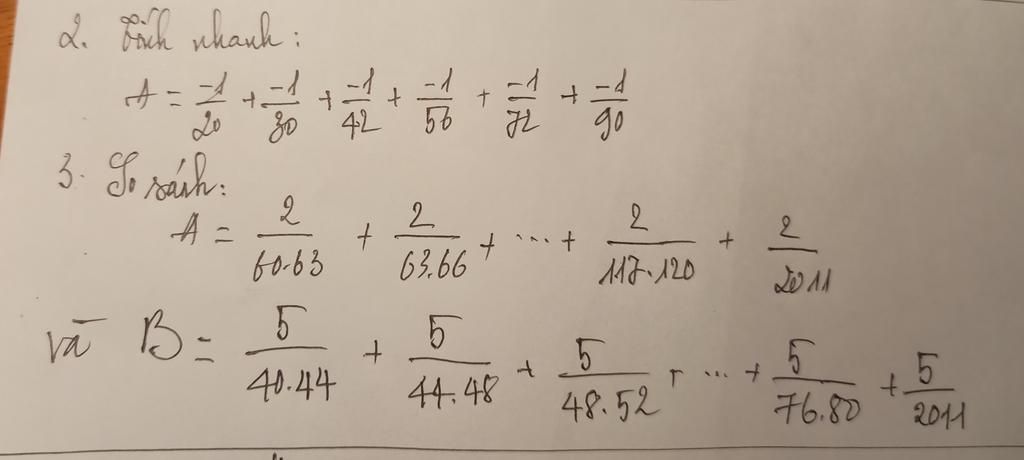 2. Tính nhanh:
A = -1/20 + -1/30 + -1/42 + -1/56 + -1/72 + -1/90
3. So sánh:
A = 2/60.63 + 2/63.66 + ... + 2/117.120 + 2/2011
và B = 5/40.44 + 5/44.48 + 5/48.52 + ... + 5/76.80 + 5/2011